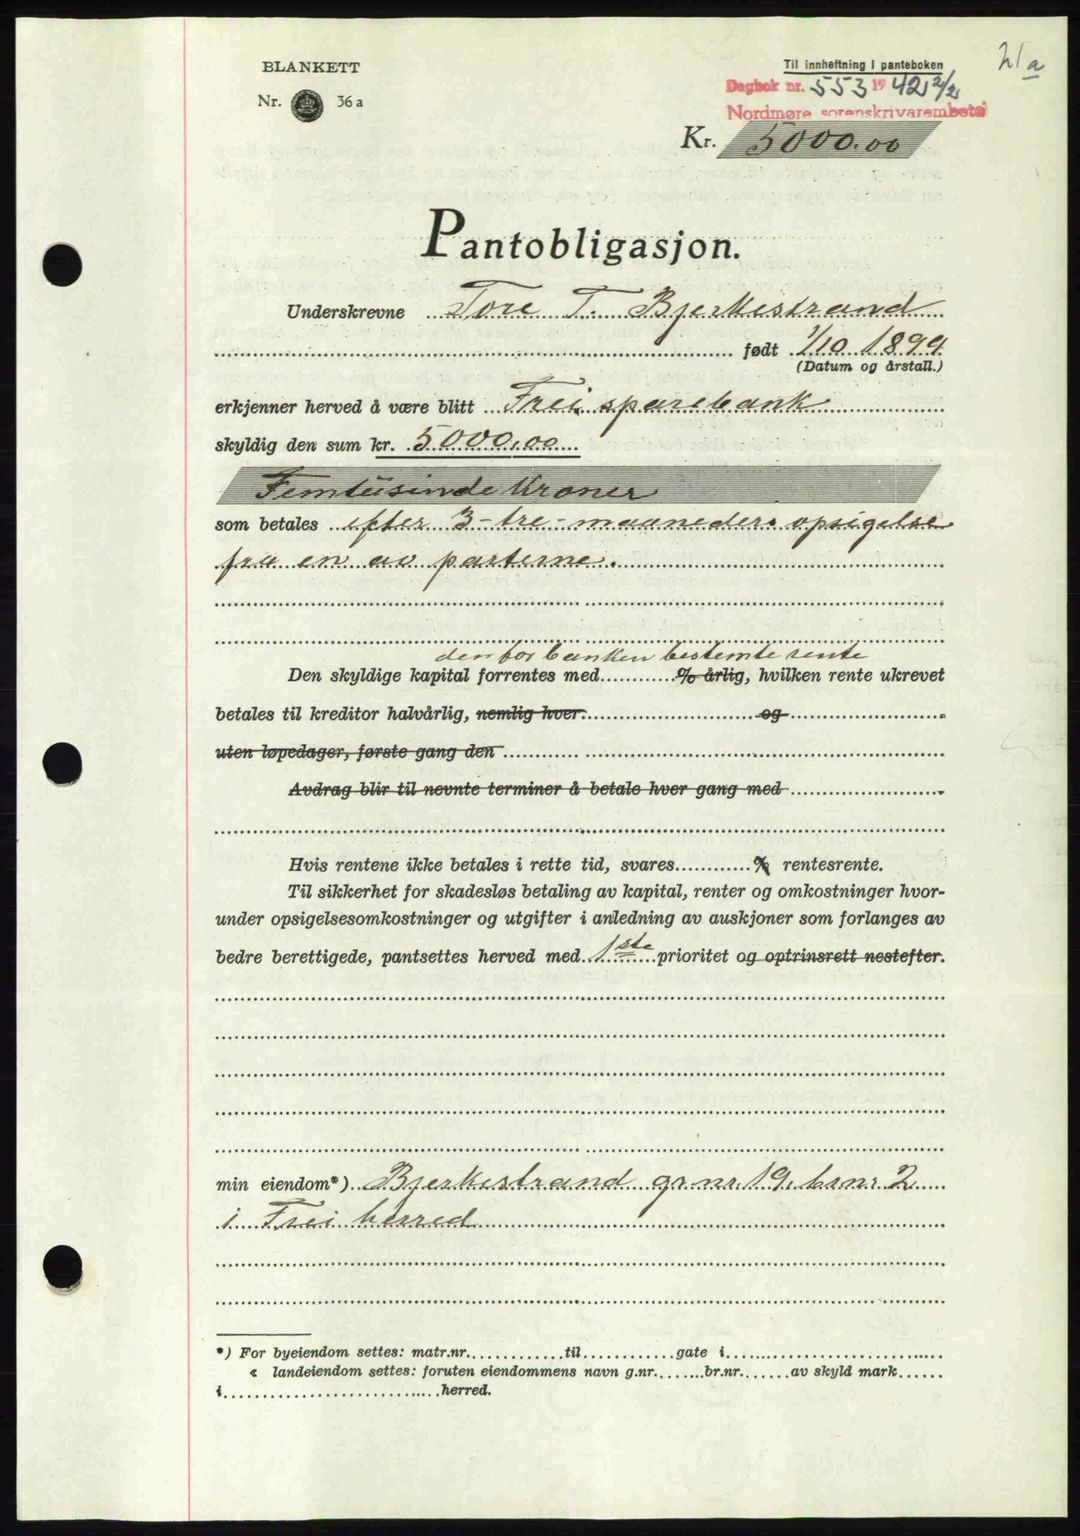 21a
BLANKETT
Nr. 36 a
Til innheftning i panteboken
Dagbok nr. 553 1942 2/2
Nordmøre sorenskrivarembete
Kr. 5000.00
Pantobligasjon.
Underskrevne Tore T. Bjerkestrand
født 1/10 1899
(Datum og årstall.)
erkjenner herved å være blitt Frei sparebank
skyldig den sum kr. 5000,00
Femtusinde Kroner
som betales efter 3-tre-maaneders opsigelse
fra en av parterne.
den for banken bestemte rente
Den skyldige kapital forrentes med............% årlig, hvilken rente ukrevet
betales til kreditor halvårlig, nemlig hver.............................og
uten løpedager, første gang den
Avdrag blir til nevnte terminer å betale hver gang med
Hvis rentene ikke betales i rette tid, svares............% rentesrente.
Til sikkerhet for skadesløs betaling av kapital, renter og omkostninger hvor-
under opsigelsesomkostninger og utgifter i anledning av auskjoner som forlanges av
bedre berettigede, pantsettes herved med 1ste prioritet og optrinsrett nestefter.
min eiendom*) Bjerkestrand gr.nr. 19. br.nr. 2
i Frei herred
*) For byeiendom settes: matr.nr..............til..............gate i..............
« landeiendom settes: foruten eiendommens navn g.nr........br.nr.......av skyld mark......
i..............herred.